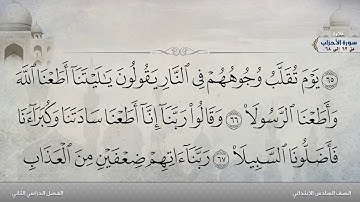 تلاوة
سورة الأحزاب
من ٦٣ إلى ٦٨
٦٥ يَوْمَ تُقَلَّبُ وُجُوهُهُمْ فِي ٱلنَّارِ يَقُولُونَ يَـٰلَيْتَنَآ أَطَعْنَا ٱللَّهَ
وَأَطَعْنَا ٱلرَّسُولَا۠ ٦٦ وَقَالُوا۟ رَبَّنَآ إِنَّآ أَطَعْنَا سَادَتَنَا وَكُبَرَآءَنَا
فَأَضَلُّونَا ٱلسَّبِيلَا۠ ٦٧ رَبَّنَآ ءَاتِهِمْ ضِعْفَيْنِ مِنَ ٱلْعَذَابِ
الصف السادس الابتدائي
الفصل الدراسي الثاني